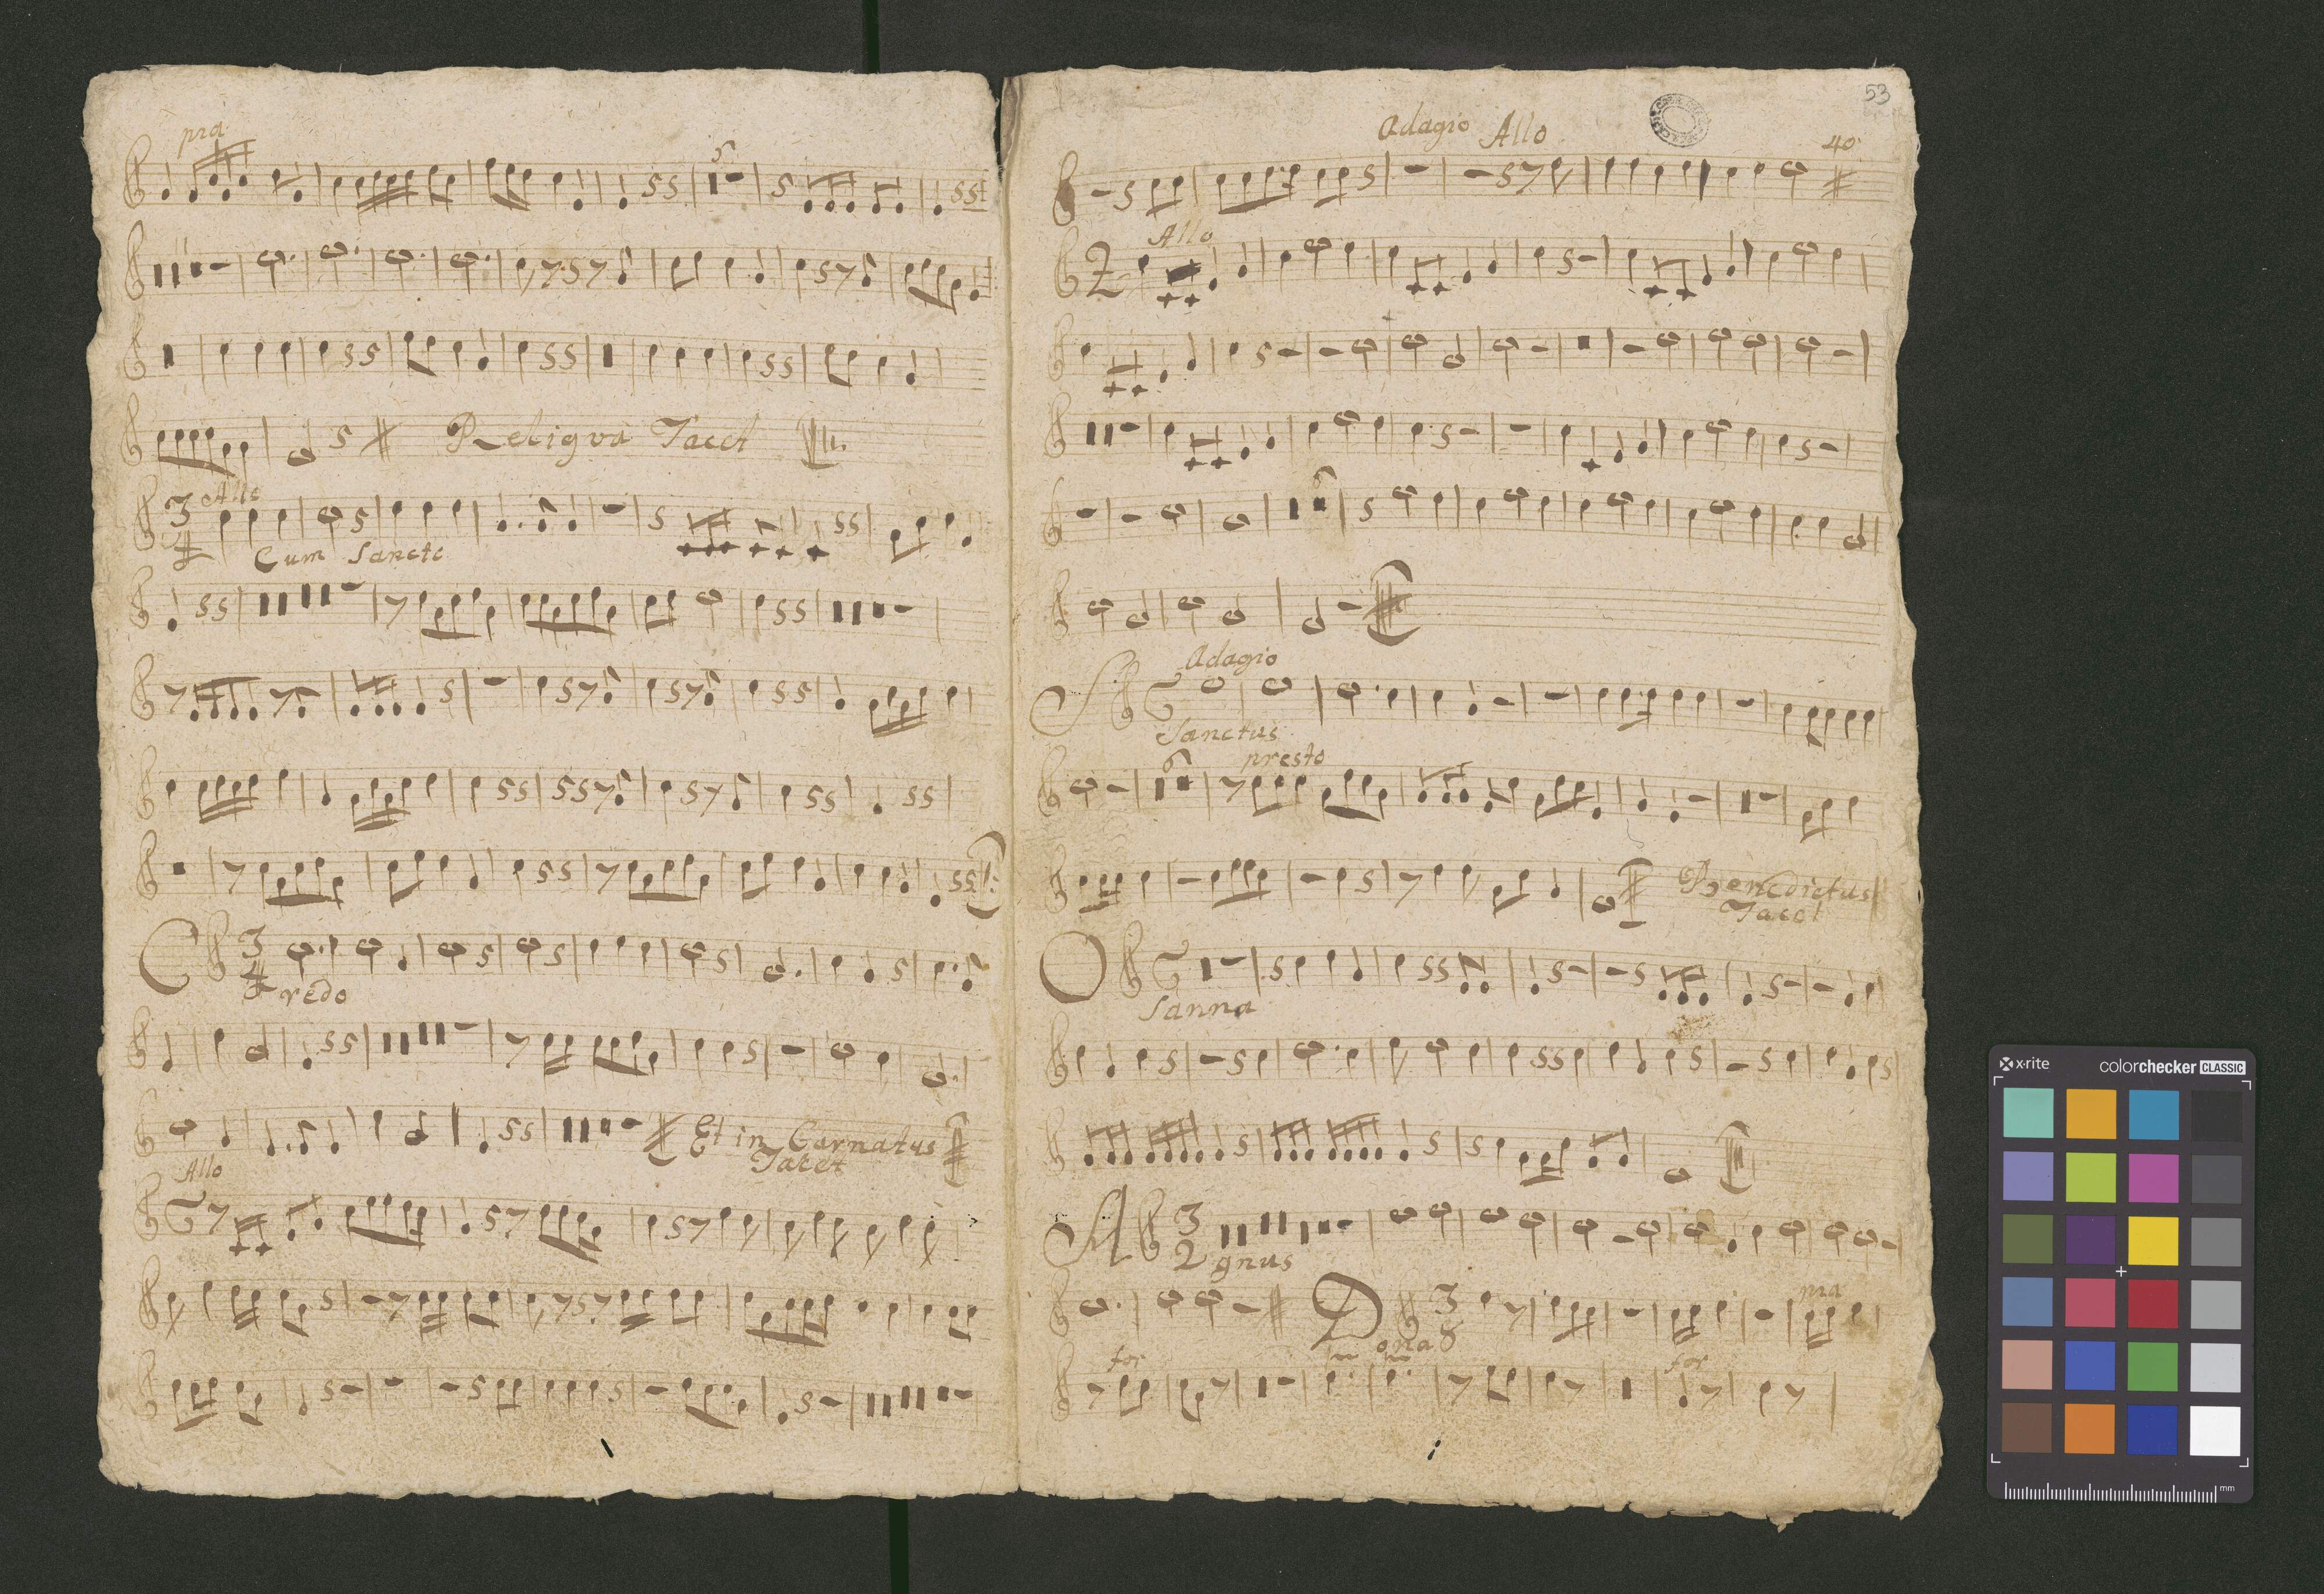 pia
5
11
Religva Tacet
Allo
3
4
Cum Sancto
3
4
Credo
Et in Carnatus
Tacet
Allo
53
Adagio Allo
40
Allo
2
6
Adagio
Sanctus
6
presto
Benedictus
Tacet
O
sanna
A
3
2
gnus
D
3
8
ona
pia
for
for
x-rite
colorchecker CLASSIC
mm